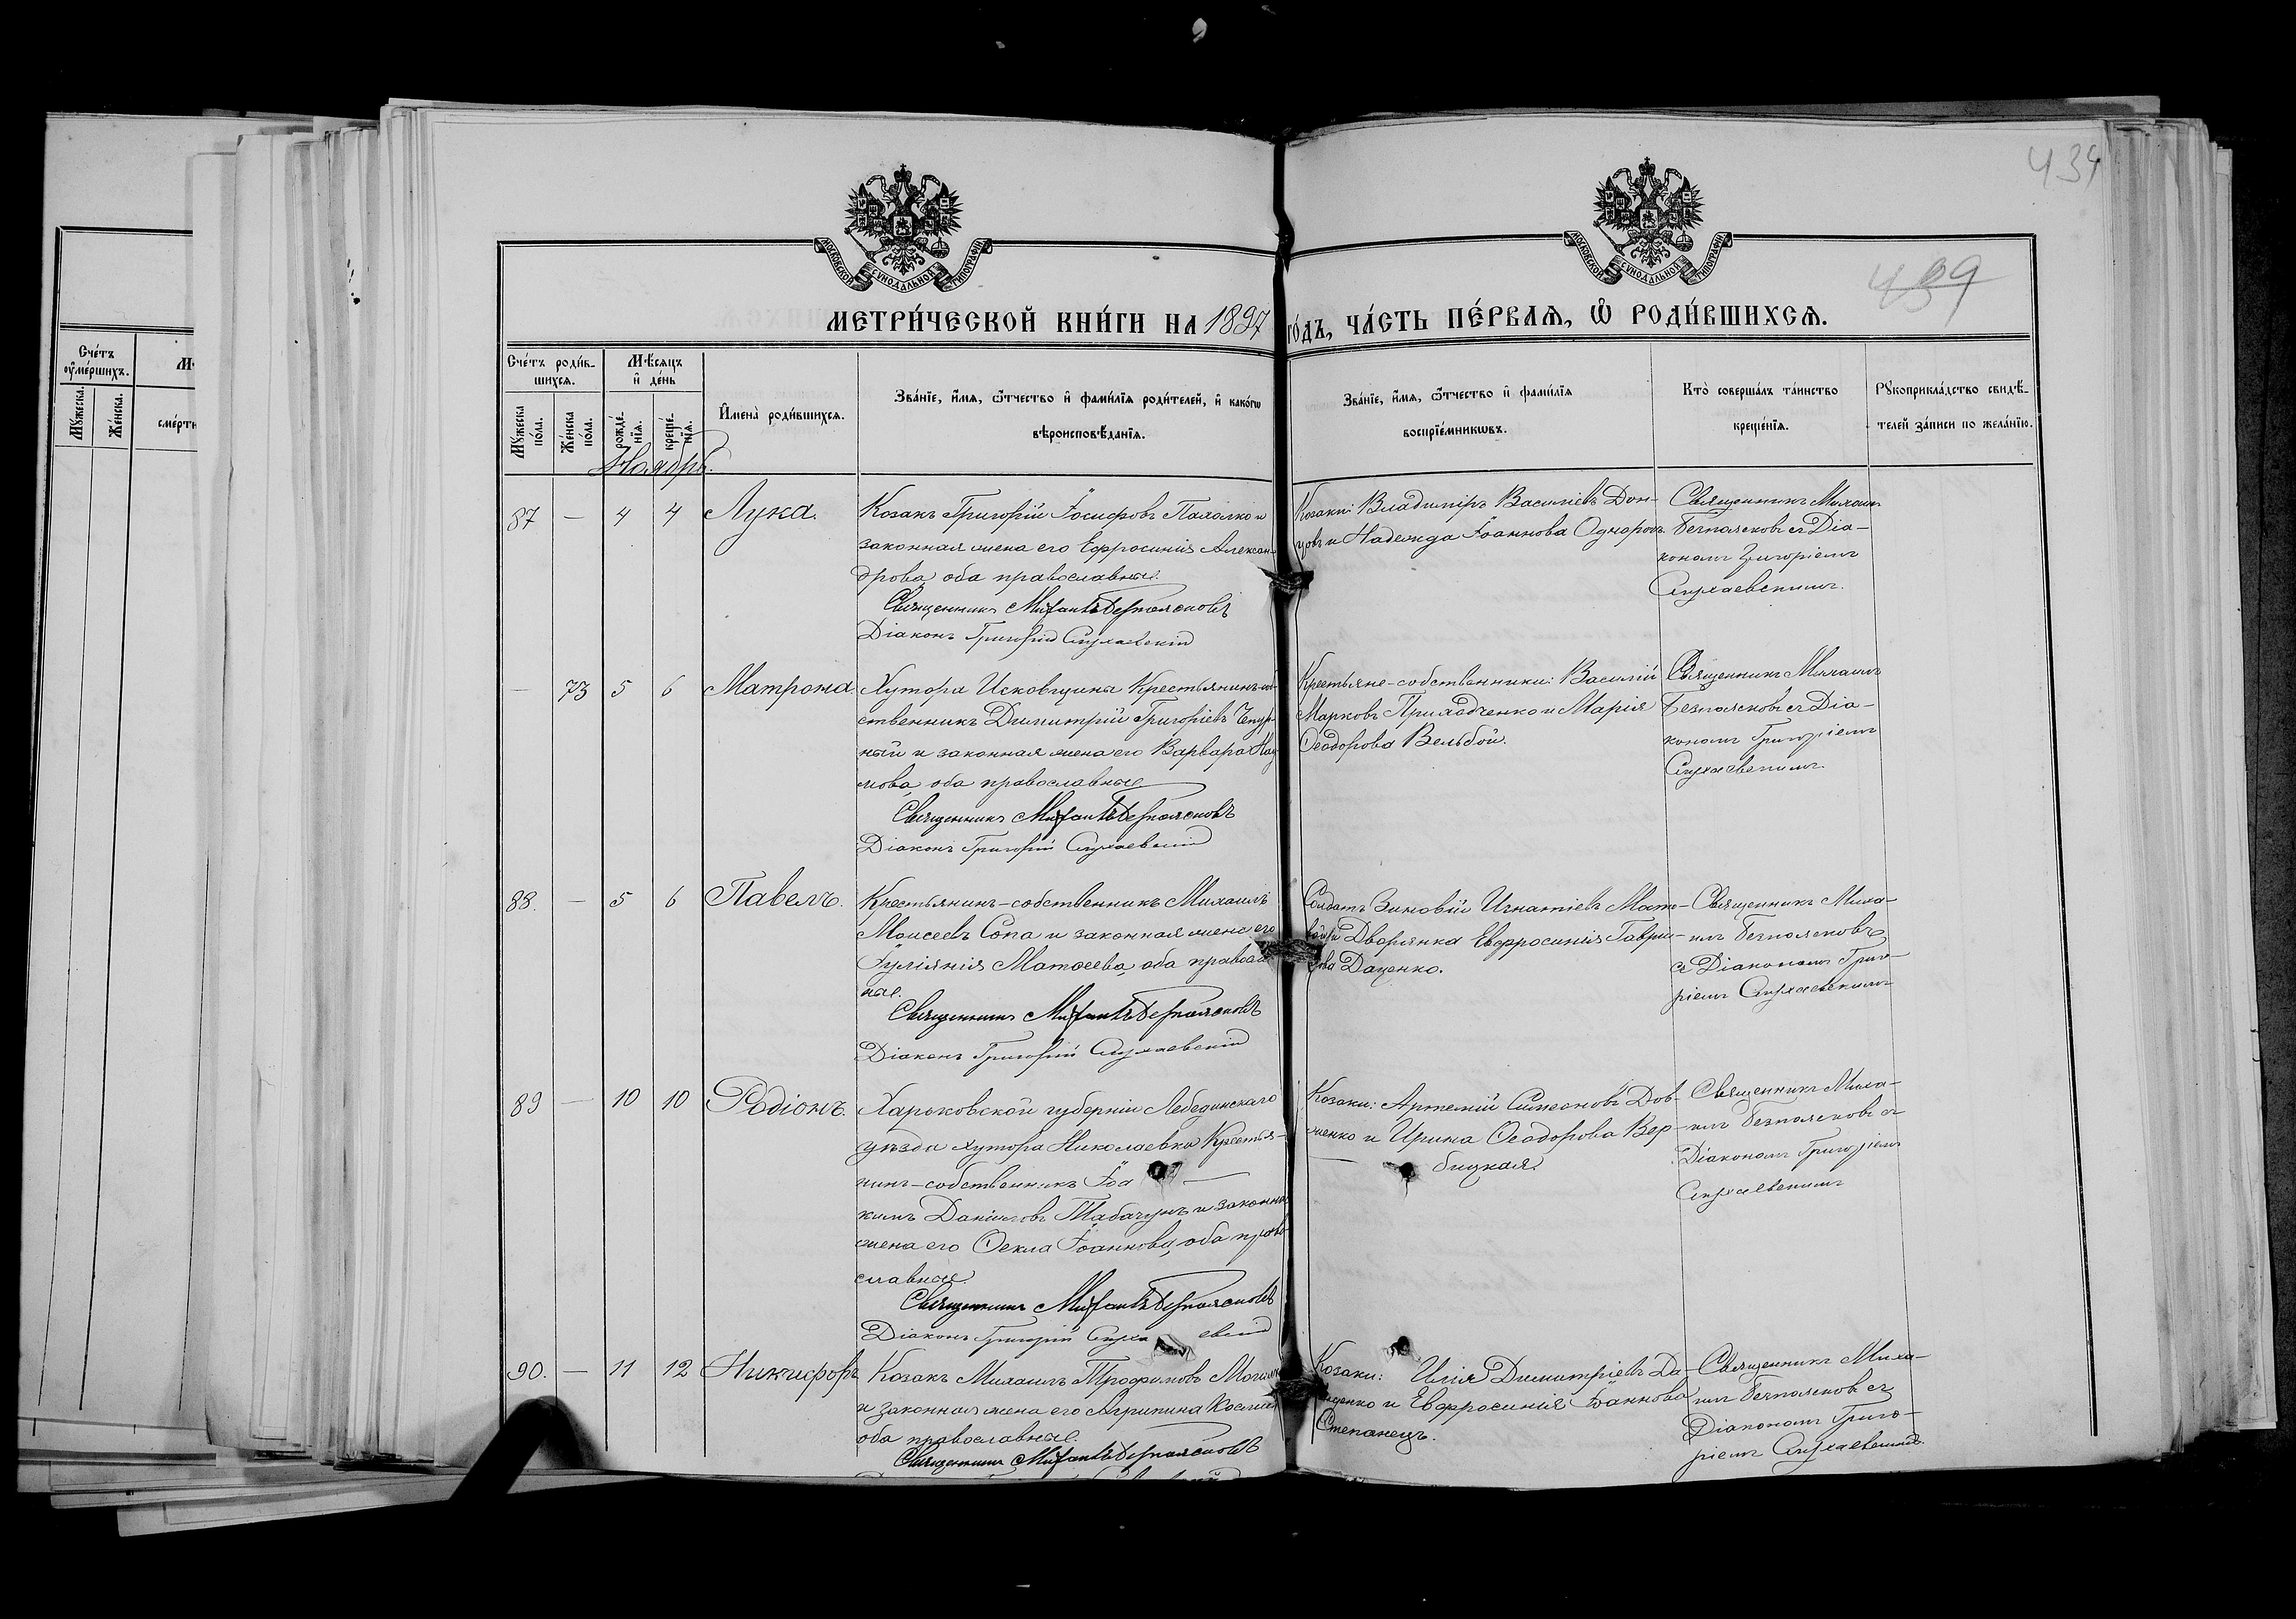 434
439
МОСКОВСКОЙ СѴНОДАЛЬНОЙ ТИПОГРАФІИ
МОСКОВСКОЙ СѴНОДАЛЬНОЙ ТИПОГРАФІИ
МЕТРИ́ЧЕСКОЙ КНИ́ГИ НА 1897 ГО́ДЪ, ЧА́СТЬ ПЕ́РВАѦ, Ѡ҆ РОДИ́ВШИХСѦ.
Сче́тъ оу҆ме́ршихъ.
Мꙋ́жеска.
Же́нска.
Сче́тъ роди́вшихсѧ.
Мꙋ́жеска по́ла.
Же́нска по́ла.
Мѣ́сѧцъ и҆ де́нь
рожде́нїѧ.
креще́нїѧ.
И҆мена̀ роди́вшихсѧ.
Зва́нїе, и҆́мѧ, ѻ҆́тчество и҆ фами́лїѧ роди́телей, и҆ како́гѡ
вѣроисповѣ́данїѧ.
Зва́нїе, и҆́мѧ, ѻ҆́тчество и҆ фами́лїѧ
воспрїе́мникѡвъ.
Кто̀ соверша́лъ та́инство
креще́нїѧ.
Рꙋкоприкла́дство свидѣ́-
телей за́писи по жела́нїю.
Ноябрь.
87 — 4 4 Лука.
Козакъ Григорій Іосифовъ Пахолко и
законная жена его Ефросинія Алексан-
дрова, оба православные.
Священникъ Михаилъ Безпоясковъ
Діаконъ Григорій Слухаевскій
Козаки: Владиміръ Василіевъ Дон-
цовъ и Надежда Іоаннова Однорогъ.
Священникъ Михаилъ
Безпоясковъ съ Діа-
кономъ Григоріемъ
Слухаевскимъ.
— 73 5 6 Матрона
Хутора Исковщины Крестьянинъ-соб-
ственникъ Димитрій Григоріевъ Чепур-
ный и законная жена его Варвара Нау-
мова, оба православные
Священникъ Михаилъ Безпоясковъ
Діаконъ Григорій Слухаевскій
Крестьяне-собственники: Василій
Марковъ Приходченко и Марія
Ѳеодорова Вельбой.
Священникъ Михаилъ
Безпоясковъ съ Діа-
кономъ Григоріемъ
Слухаевскимъ.
88. — 5 6 Павелъ.
Крестьянинъ-собственникъ Михаилъ
Моисеевъ Сопа и законная жена его
Іуліянія Матѳеева оба православ-
ные.
Священникъ Михаилъ Безпоясковъ
Діаконъ Григорій Слухаевскій
Солдатъ Зиновій Игнатіевъ
и Дворянка Евфросинія Гаври-
Даценко.
Священникъ Миха-
илъ Безпоясковъ
съ Діакономъ Григо-
ріемъ Слухаевскимъ
89 — 10 10 Родіонъ.
Харьковской губерніи Лебединскаго
уѣзда хутора Николаевки Крестья-
нинъ-собственникъ Іоа —
кимъ Даніиловъ Табачукъ и законная
жена его Ѳекла Іоаннова, оба право-
славные.
Священникъ Михаилъ Безпоясковъ
Діаконъ Григорій Слухаевскій
Козаки: Артемій Симеоновъ Дов-
женко и Ирина Ѳеодорова Вер-
бицкая.
Священникъ Миха-
илъ Безпоясковъ съ
Діакономъ Григоріемъ
Слухаевскимъ
90. — 11 12 Никифоръ
Козакъ Михаилъ Трофимовъ
и законная жена его Агрипина
оба православные.
Священникъ Михаилъ Безпоясковъ
Козаки: Илія Димитріевъ Да-
ценко и Евфросинія Іоаннова
Степанецъ.
Священникъ Миха-
илъ Безпоясковъ съ
Діакономъ Григо-
ріемъ Слухаевскимъ.